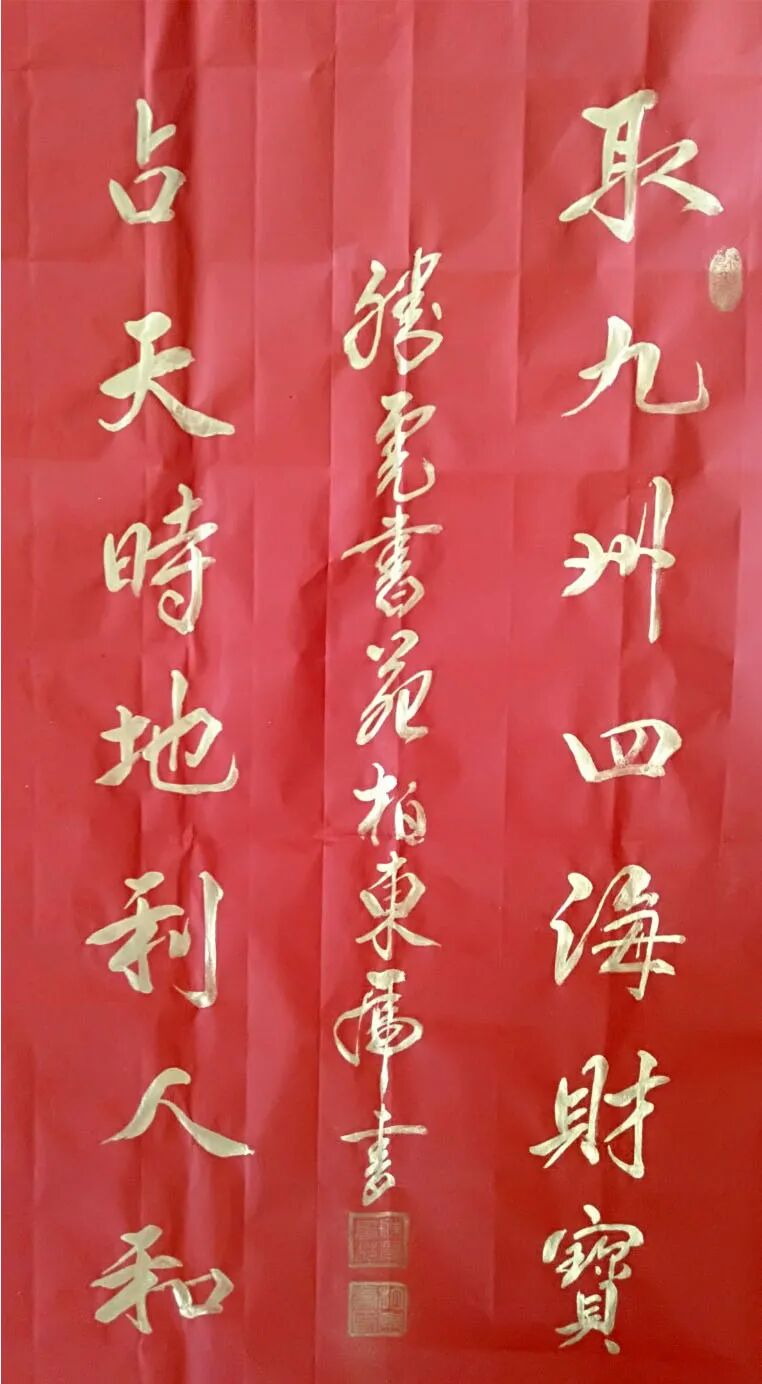 取九州四海財寶
占天時地利人和
腾雲書苑柏東虎書